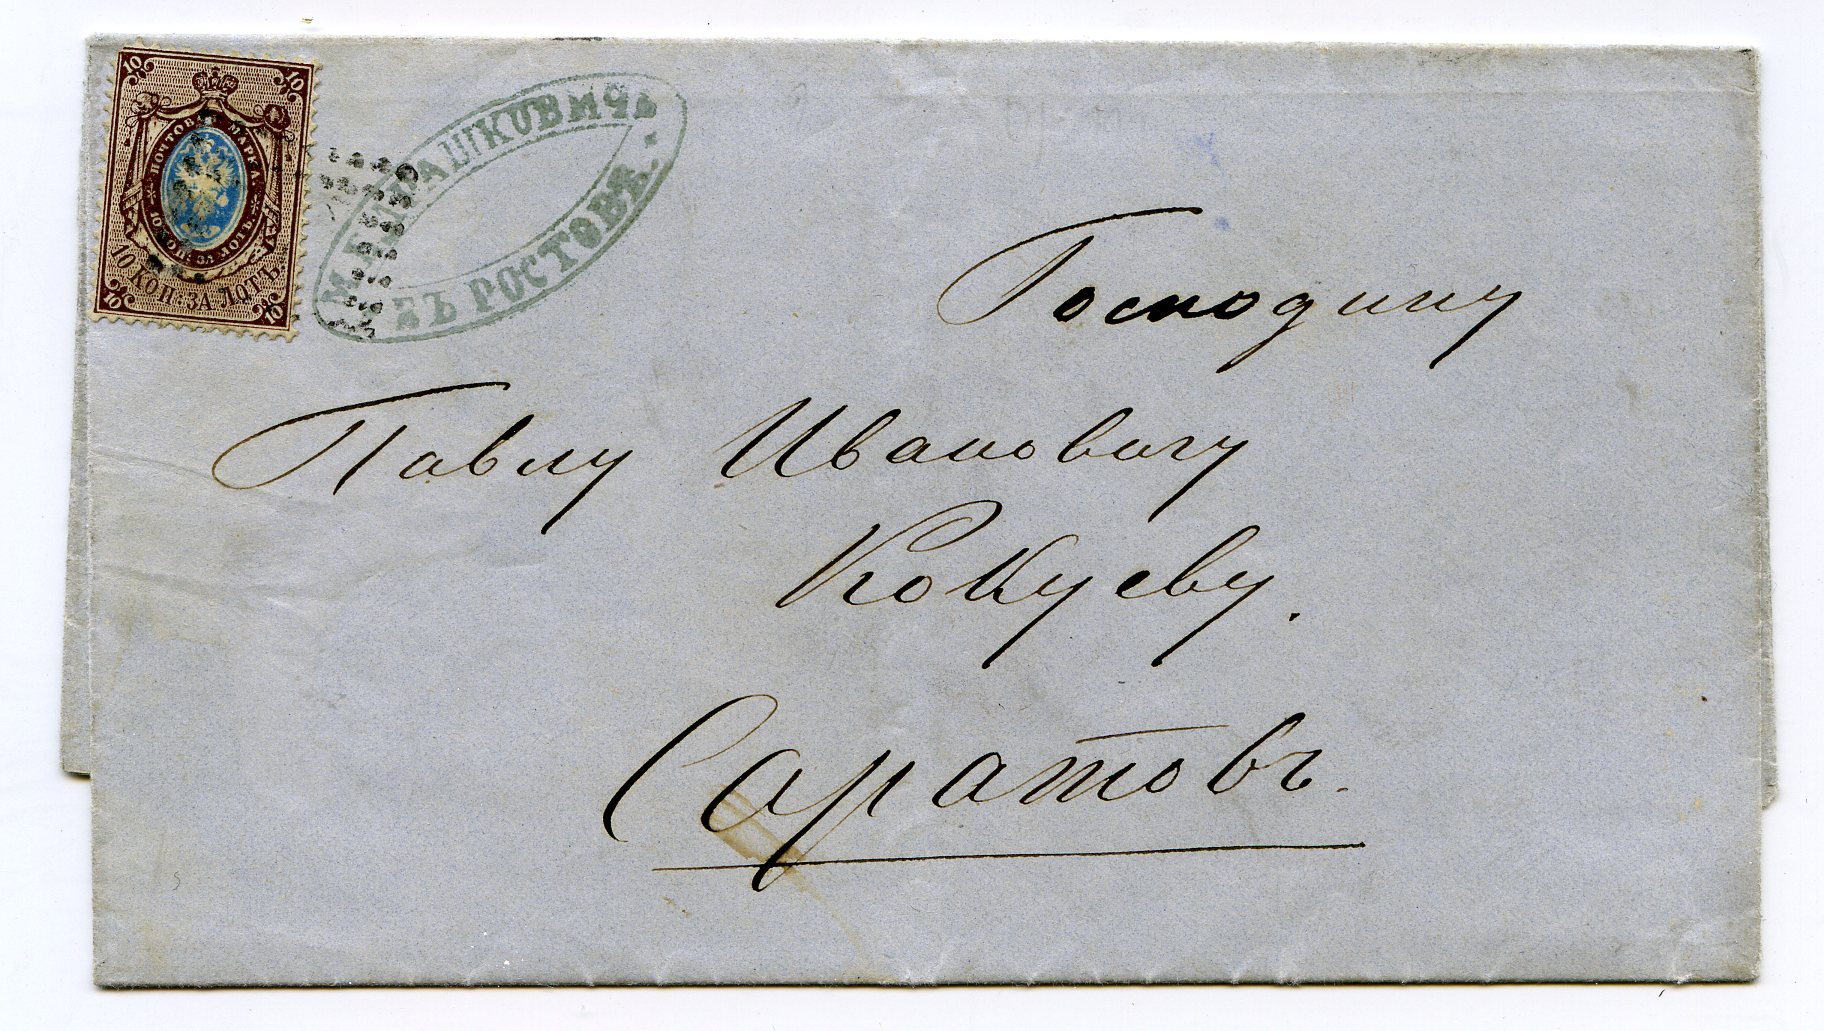 10 10
ПОЧТОВ. МАРКА
10 КОП. ЗА ЛОТЪ
10 КОП. ЗА ЛОТЪ.
10 10
ВЪ РОСТОВѢ.
Господину
Павлу Ивановичу
Кокуеву.
Саратовъ.